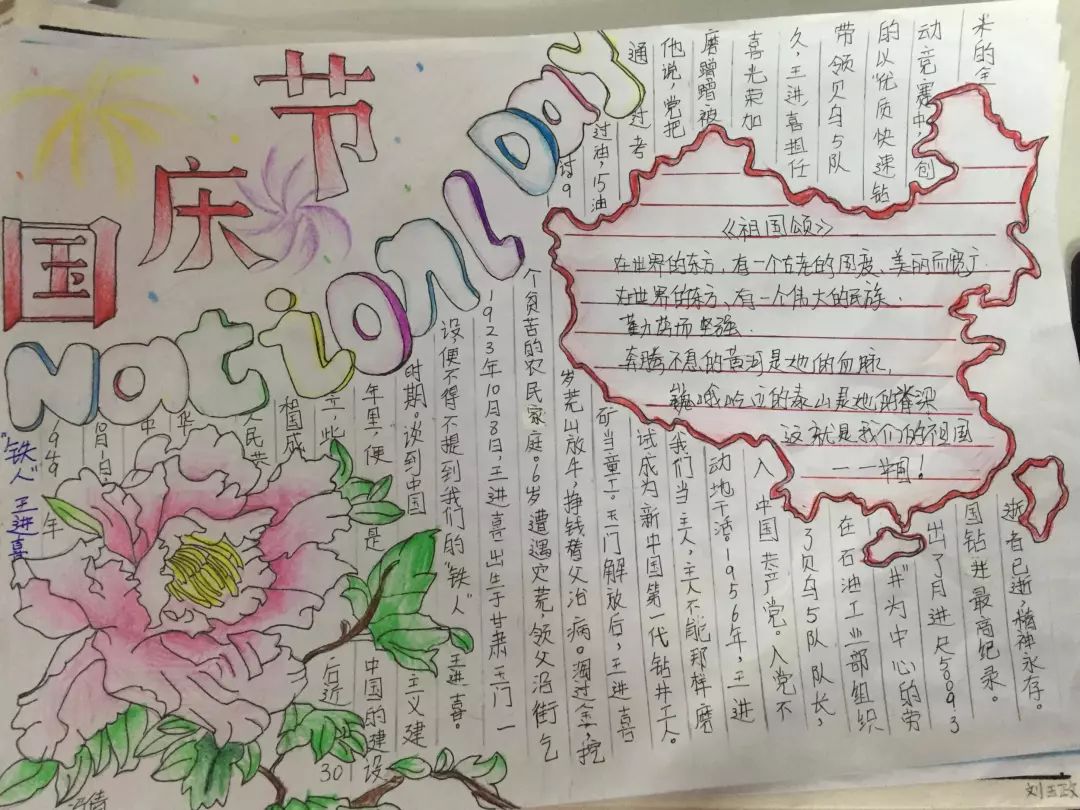 国庆节
National Day
"铁人"王进喜
949年
10月1日,
中
华
人民共
和国成
立,此
后近30
年里,便是
中国的建设
时期。谈到中国
主义建
设便不得不提到我们的"铁人"王进喜。
1923年10月8日,王进喜出生于甘肃玉门一
个贫苦的农民家庭。6岁遭遇灾荒领父沿街乞
讨9
岁荒山放牛,挣钱替父治病。淘过金,挖
过油,15油
矿当童工。玉门解放后,王进喜
通过考
试成为新中国第一代钻井工人。
他说,党把
我们当主人,主人不能那样磨
磨蹭蹭被
动地干活。1956年,王进
喜光荣加
入中国共产党。入党不
久,王进喜担任
了贝乌5队队长,
带领贝乌5队
在石油工业部组织
的以"优质快速钻
井"为中心的劳
动竞赛中,创
出了月进尺5009.3
米的全
国钻井最高纪录。
逝者已逝,精神永存。
《祖国颂》
在世界的东方,有一个古老的国度,美丽而宽广
在世界的东方,有一个伟大的民族.
勤劳而坚强.
奔腾不息的黄河是她的血脉,
巍峨屹立的泰山是她的脊梁
这就是我们的祖国
——中国!